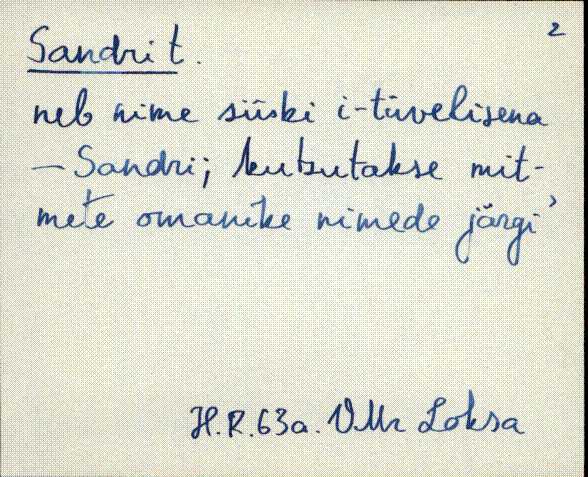 2
Sandri t.
neb nime siiski i-tüvelisena
— Sandri; kutsutakse mit-
mete omanike nimede järgi’
H.R. 63a. VMr Loksa